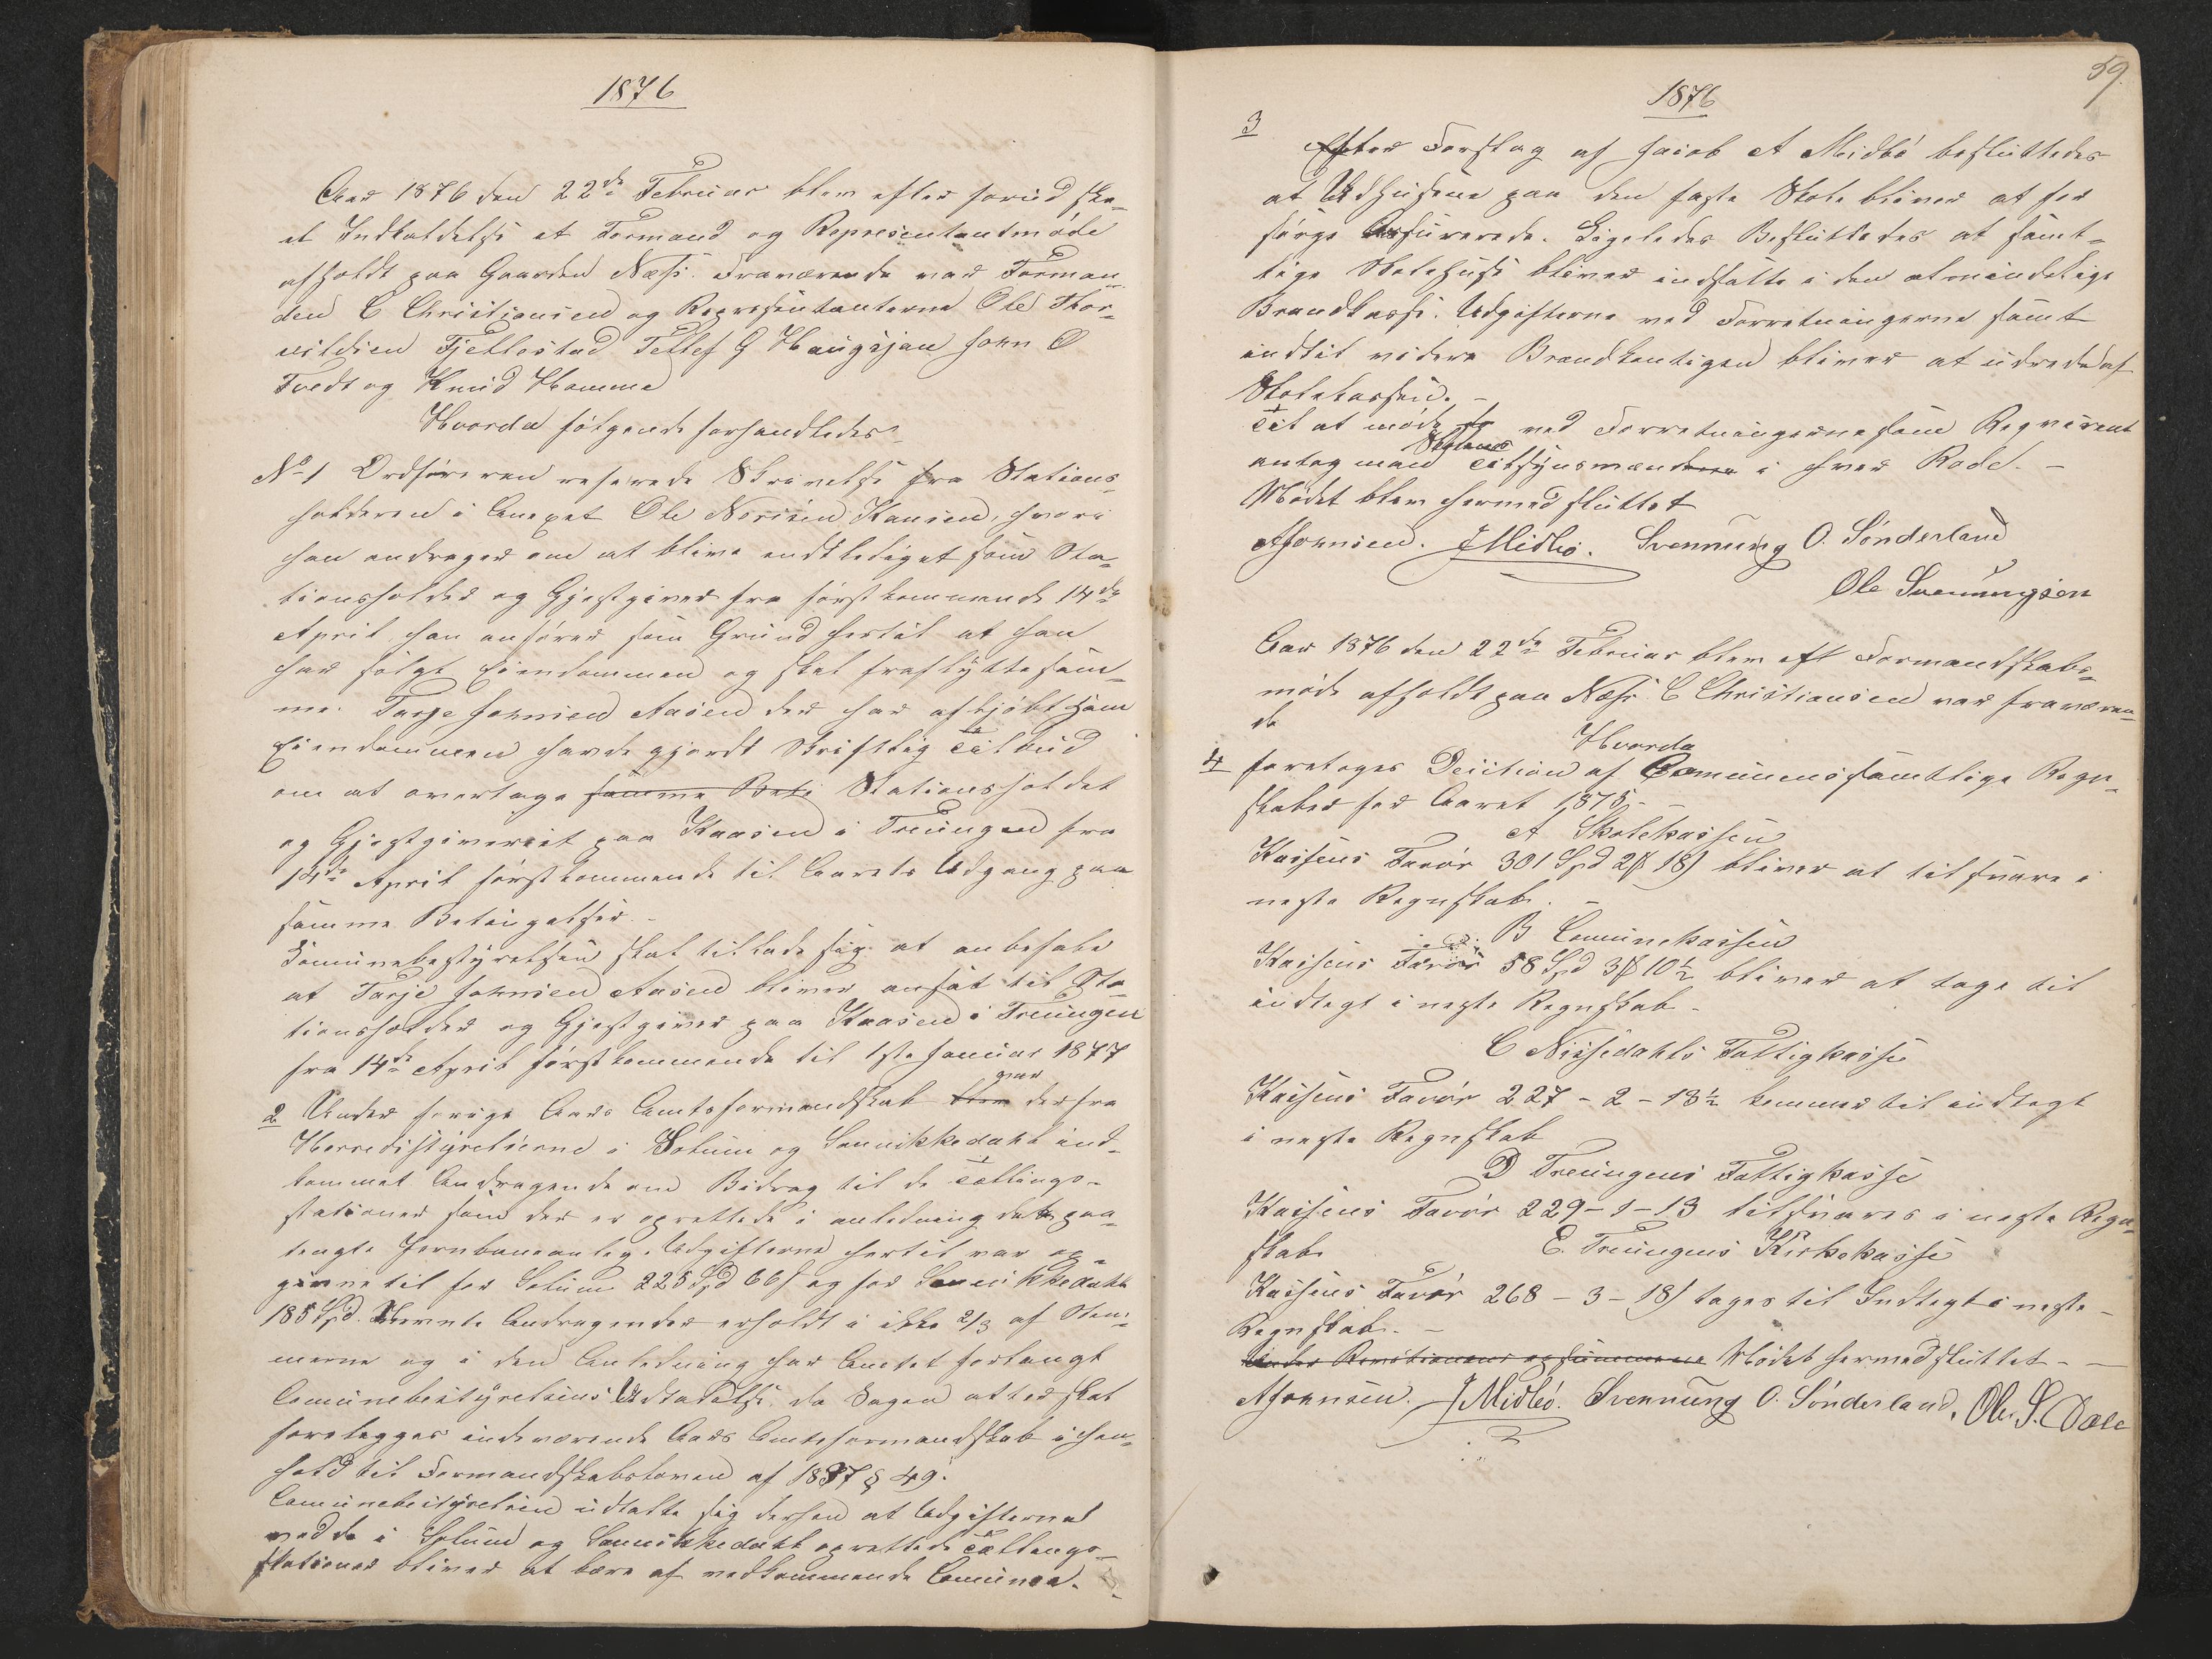 1876
Aar 1876 den 22de Februar blev efter forud ske-
et Indkaldelse et Formand og Representantmøde
afholdt paa Gaarden Næss. Fraværende var Forman-
den C Christiansen og Representanterne Ole Thor-
vildsen Fjellestad Tellef G Haugsjaa John O
Tvedt og Knud Homme
Hvorda følgende forhandledes
No 1 Ordføreren refererede Skrivelse fra Stations-
holderen i Anexet Ole Nerisen Kaasen, hvori
han andrager om at blive endtlediget som Sta-
tionsholder og Gjestgiver fra førstkommende 14de
April han anfører som Grund hertil at han
har solgt Eiendommen og skal fraflytte sam-
me. Tarje Johnsen Aasen der har afkjøbt ham
Eiendommen havde gjordt Skriftlig Tilbud
om at overtage samme Bete Stationsholdet
og Gjestgiveriet paa Kaasen i Treungen fra
14de April førstkommende til Aarets Udgang paa
samme Betingelser.-
Komunebestyrelsen skal tillade sig at anbefale
at Tarje Johnsen Aasen bliver ansat til Sta-
tionsholder og Gjestgiver paa Kaasen i Treungen
fra 14de April førstkommende til 1ste Januar 1877
2 Under forrige Aars Amtsformandskab blev var der fra
Herredistyrelserne i Solum og Sannikkedahl ind-
kommet Andragende om Bidrag til de Tællings-
stationer som der er oprettede i anledning det paa-
tengte Jernbaneanlæg. Udgifterne hertil var op-
givne til for Solum 225 Spd 66 s og for Sannikkedahl
185 Spd. Nevnte Andragender erholdt i ikke 2/3 af Stem-
merne og i den Anledning har Amtet forlangt
Comunebestyrelsens Udtalelse, da Sagen atter skal
forelegges indeværende Aars Amtsformandskab i hen-
hold til Formandskabsloven af 1837 § 49.
Comunebestyrelsen udtalte sig derhen at Udgifterne
ved de i Solum og Sannikkedahl oprettede Tællings-
stationer bliver at bære af vedkommende Comuner.
59.
1876
3
Efter Forslag af Jacob A Midbø besluttedes
at Udhusene paa den faste Skole bliver at for
sørge Assurerede. Ligeledes Besluttedes at samt-
lige Skolehuse bliver indsatte i den almindelige
Brandkasse. Udgifterne ved Forretningerne samt
indtil videre Brandkontigen bliver at udrede af
Skolekassen. -
Til at møde ved Forretningerne som Reqvirent
antog man Skolens Tilsynsmænd i hver Rode. -
Mødet blev hermed sluttet
AJohnsen. JMidbø. Svennung O. Sønderland
Ole Svennungsen
Aar 1876 den 22de Februar blev eft Formandskabs-
møde afholdt paa Næss C Christiansen var fraværen-
de
Hvorda
4 foretoges Decition af Comunens samtlige Regn-
skaber for Aaret 1875 -
A Skolekassen
Kassens Favør 301 Spd 2 # 18 s bliver at tilsvare i
neste Regnskab. -
B Comunekassen
Kassens Favør 58 Spd 3 # 10½ bliver at tage til
indtegt i neste Regnskab -
C Nissedahls Fattigkasse
Kassens Favør 227 - 2 - 13½ kommer til indtegt
i neste Regnskab
D Treungens Fattigkasse
Kassens Favør 229 - 1 - 13 tilsvares i neste Regn-
skab
E. Treungens Kirkekasse
Kassens Favør 268 - 3 - 18 s tages til Indtegt i neste -
Regnskab. -
Mødet hermed sluttet - -
AJohnsen. JMidbø. Svennung O. Sønderland, Ole S. Dale